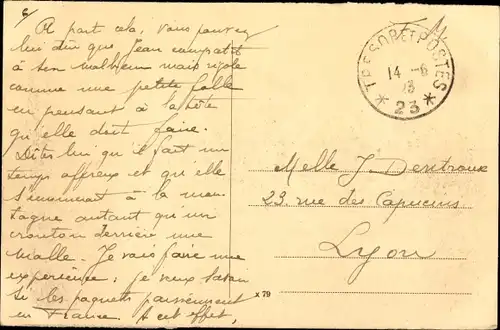 6
A part cela, vous pouvez
lui dire que Jean compatit
à son malheur mais rigole
comme une petite folle
en pensant à la tête
qu'elle doit faire.
Dîtes lui qu'il fait un
temps affreux et qu'elle
s'ennuierait à la mon-
tagne autant qu'un
crouton derrière une
malle. Je vais faire une
expérience : je veux savoir
si les paquets parviennent
en France. A cet effet,
TRESOR ET POSTES
14 - 6
23
* 23 *
F.M.
Melle J. Dextraux
23 rue des Capucins
Lyon
x 79